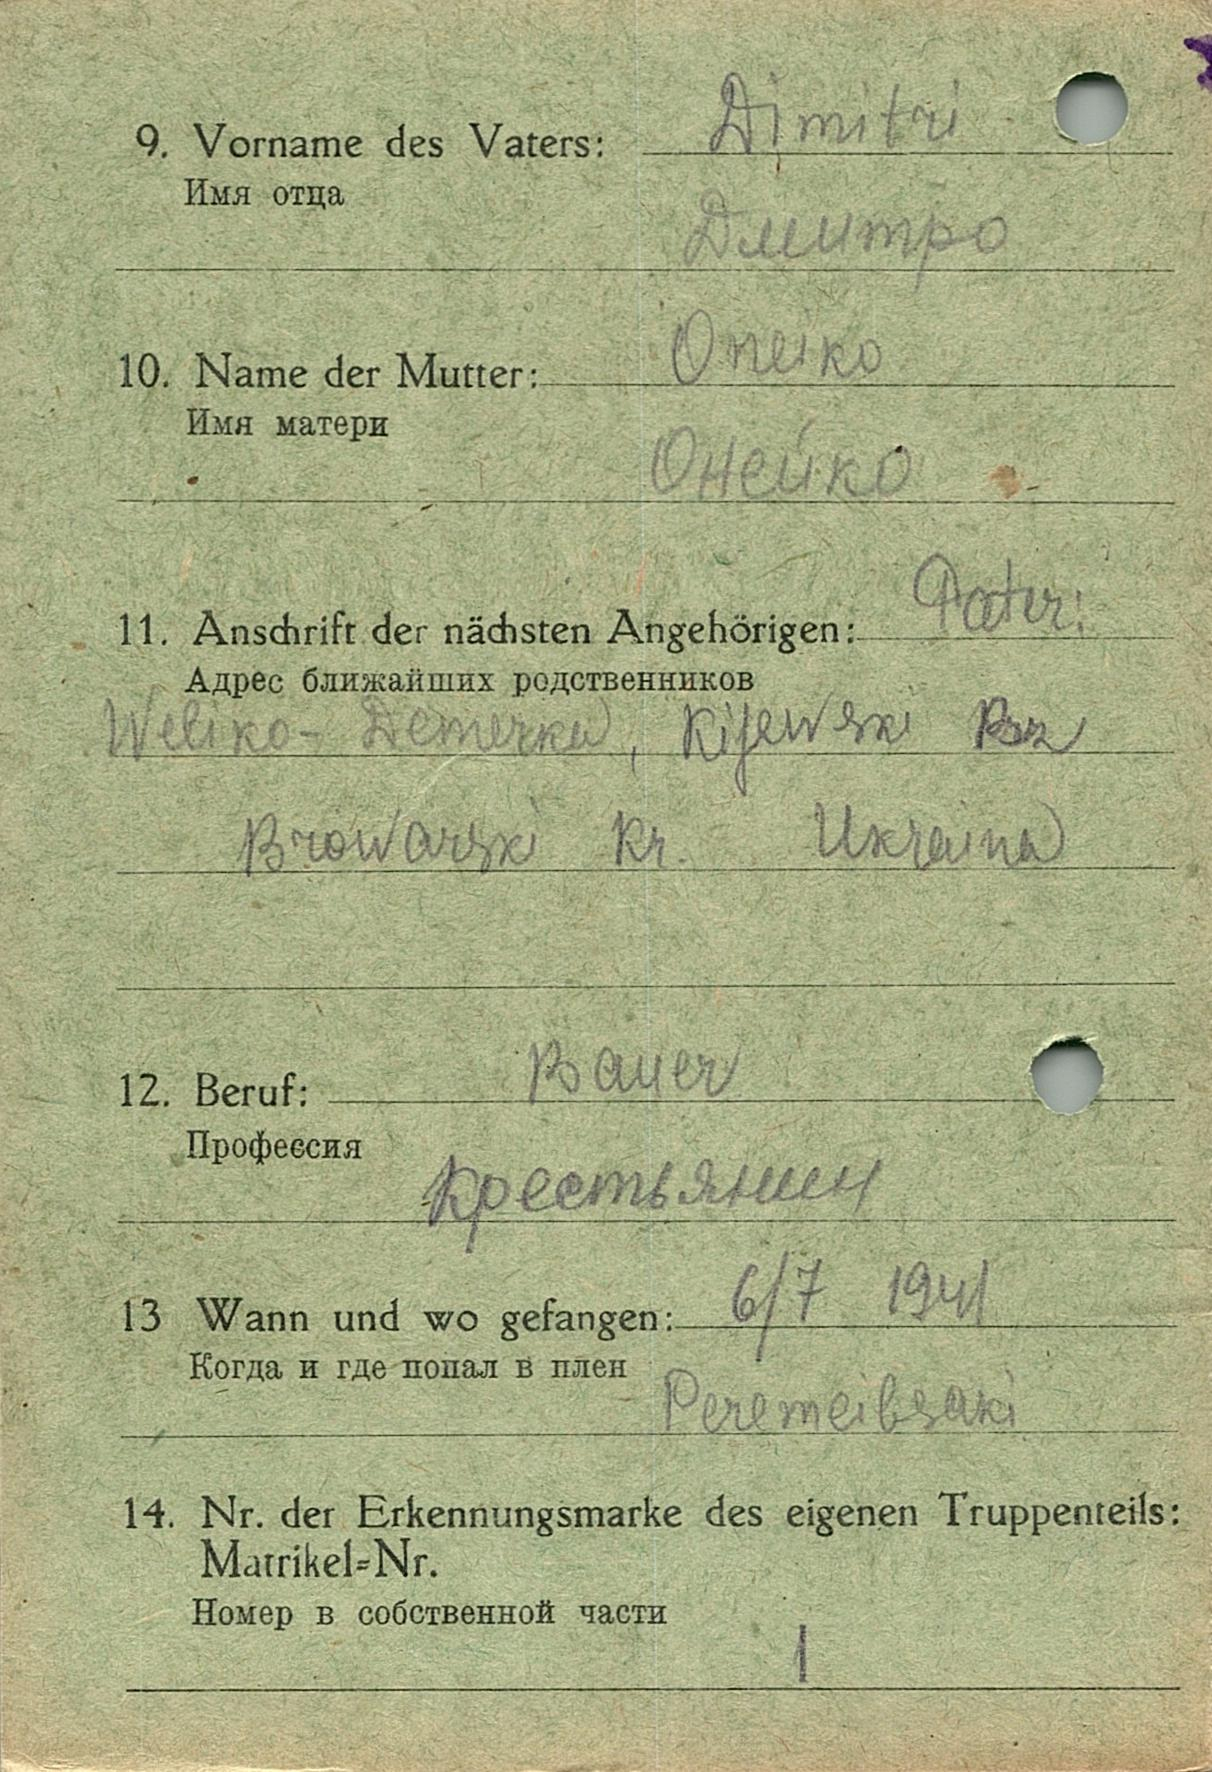 9. Vorname des Vaters: Dimitri
Имя отца
Дмитро
10. Name der Mutter: Oneiko
Имя матери
Онейко
11. Anschrift der nächsten Angehörigen: Vater:
Адрес ближайших родственников
Weliko-Demerka, Kijewski Bez
Browarski Kr. Ukraina
12. Beruf: Bauer
Профессия
Крестьянин
13 Wann und wo gefangen: 6/7 1941
Когда и где попал в плен
14. Nr. der Erkennungsmarke des eigenen Truppenteils:
Matrikel=Nr.
Номер в собственной части